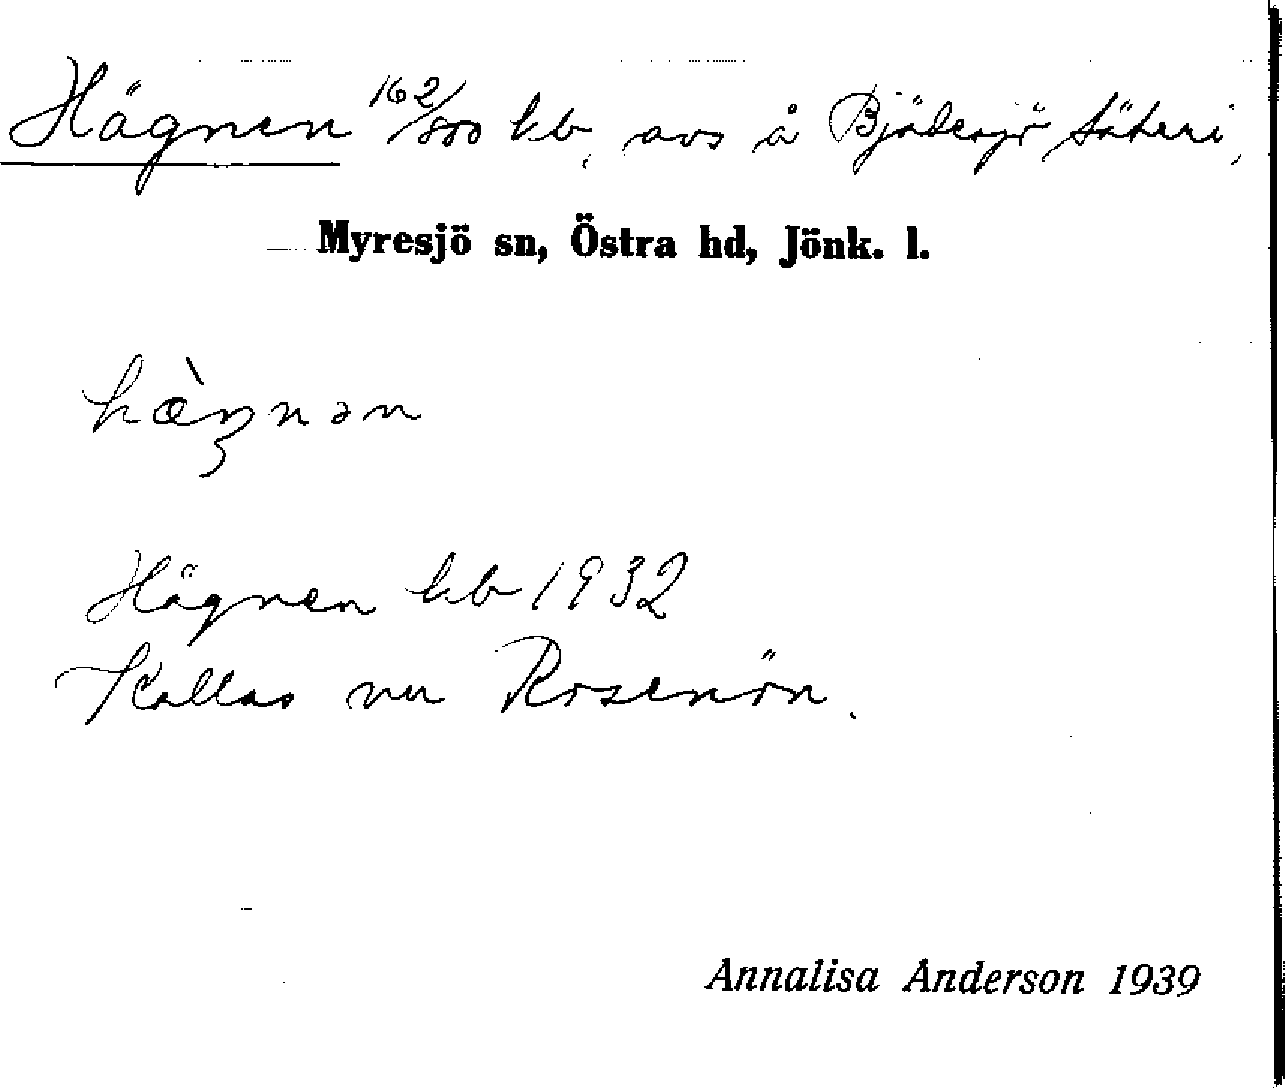 Hägnen 162/800 kb, avs å Bjädesjö säteri,
Myresjö sn, Östra hd, Jönk. l.
hæ̀ŋnən
Hägnen kb 1932
Kallas nu Rosenön.
Annalisa Anderson 1939